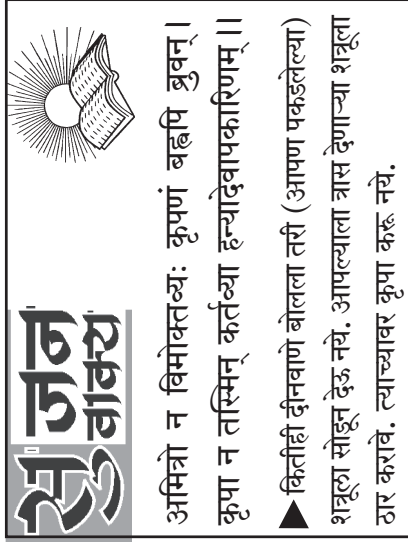 सु जन
वाक्य
अमित्रो न विमोक्तव्यः कृपणं बह्वपि ब्रुवन् ।
कृपा न तस्मिन् कर्तव्या हन्यादेवापकारिणम् ।।
▶ कितीही दीनवाणे बोलला तरी (आपण पकडलेल्या)
शत्रूला सोडून देऊ नये. आपल्याला त्रास देणाऱ्या शत्रूला
ठार करावे. त्याच्यावर कृपा करू नये.